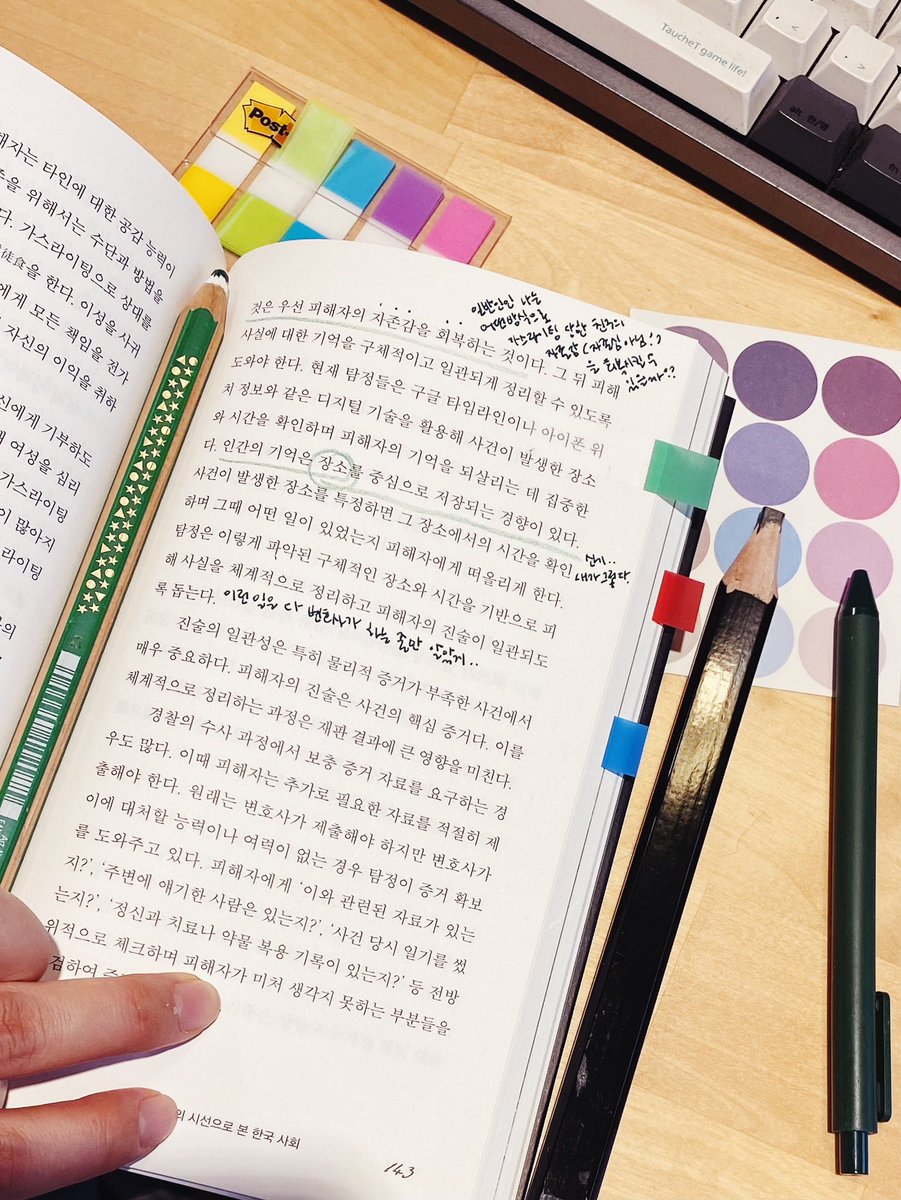 TaucheT game life!
<
>
alt 한/영
fn
Post-
해자는 타인에 대한 공감 능력이
을 위해서는 수단과 방법을
다. 가스라이팅으로 상대를
徒食을 한다. 이성을 사귀
에게 모든 책임을 전가
자신의 이익을 취하
신에게 기부하도
여성을 심리
가스라이팅
이 많아지
라이팅
것은 우선 피해자의 자존감을 회복하는 것이다. 그 뒤 피해
사실에 대한 기억을 구체적이고 일관되게 정리할 수 있도록
도와야 한다. 현재 탐정들은 구글 타임라인이나 아이폰 위
치 정보와 같은 디지털 기술을 활용해 사건이 발생한 장소
와 시간을 확인하며 피해자의 기억을 되살리는 데 집중한
다. 인간의 기억은 장소를 중심으로 저장되는 경향이 있다.
사건이 발생한 장소를 특정하면 그 장소에서의 시간을 확인
하며 그때 어떤 일이 있었는지 피해자에게 떠올리게 한다.
탐정은 이렇게 파악된 구체적인 장소와 시간을 기반으로 피
해 사실을 체계적으로 정리하고 피해자의 진술이 일관되도
록 돕는다. 이런 일은 다 변호사가 하는 줄만 알았지..
진술의 일관성은 특히 물리적 증거가 부족한 사건에서
매우 중요하다. 피해자의 진술은 사건의 핵심 증거다. 이를
체계적으로 정리하는 과정은 재판 결과에 큰 영향을 미친다.
경찰의 수사 과정에서 보충 증거 자료를 요구하는 경
우도 많다. 이때 피해자는 추가로 필요한 자료를 적절히 제
출해야 한다. 원래는 변호사가 제출해야 하지만 변호사가
이에 대처할 능력이나 여력이 없는 경우 탐정이 증거 확보
를 도와주고 있다. 피해자에게 ‘이와 관련된 자료가 있는
지?’, ‘주변에 얘기한 사람은 있는지?’, ‘사건 당시 일기를 썼
는지?’, ‘정신과 치료나 약물 복용 기록이 있는지?’ 등 전방
위적으로 체크하며 피해자가 미처 생각지 못하는 부분들을
검하여
일반인인 나는
어떤방식으로
가스라이팅 당한 친구의
자존감 (자존심 아님!)
을 회복시킬 수
있을까?
내가 그렇다.
의 시선으로 본 한국 사회
143